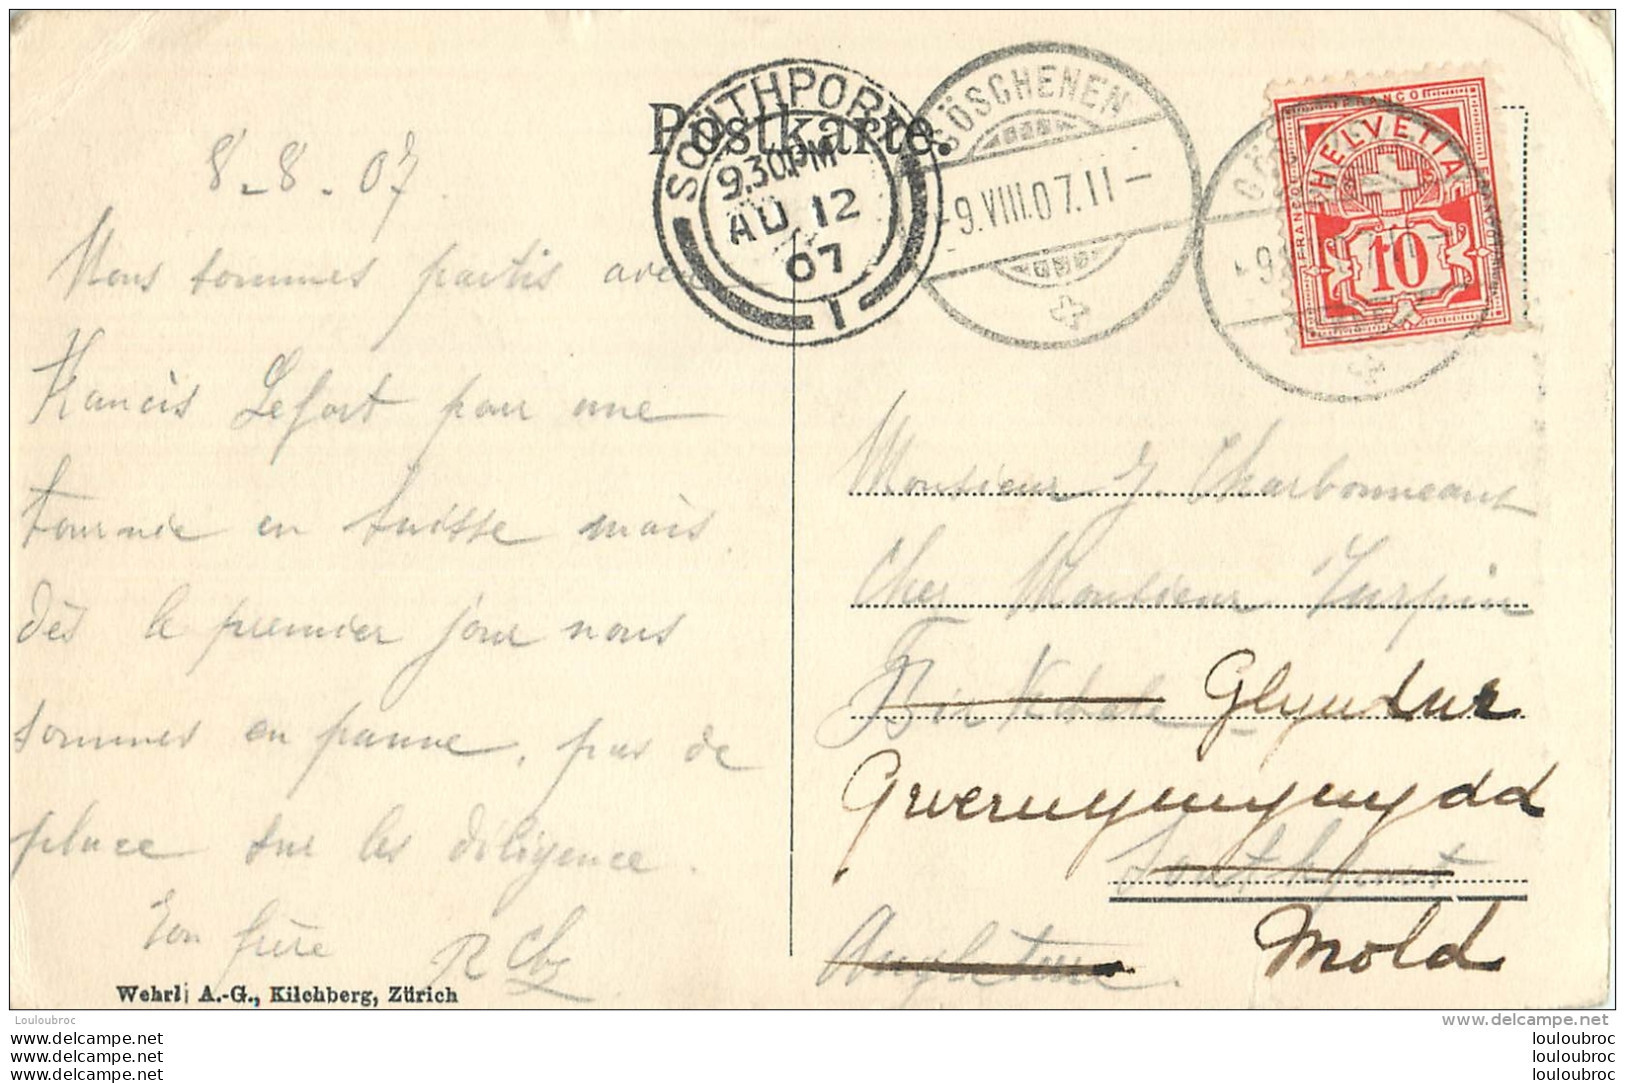 Postkarte.
SOUTHPORT
9.30PM
AU 12
07
1
GÖSCHENEN
-9.VIII.07.11-
FRANCO
HELVETIA
FRANCO
FRANCO
10
8-8-07
Nous sommes partis avec
Francis Lefort pour une
tournée en Suisse mais
dès le premier jour nous
sommes en panne, pas de
place sur les diligence.
Ton frère R Chx
Wehrli A.-G., Kilchberg, Zürich
Monsieur J. Charbonneaux
Chez Monsieur Turpin
Birkdale Glyndur
Gwernymynydd
Southport
Angleterre Mold
Louloubroc
www.delcampe.net
louloubroc
louloubroc
louloubroc
louloubroc
louloubroc
louloubroc